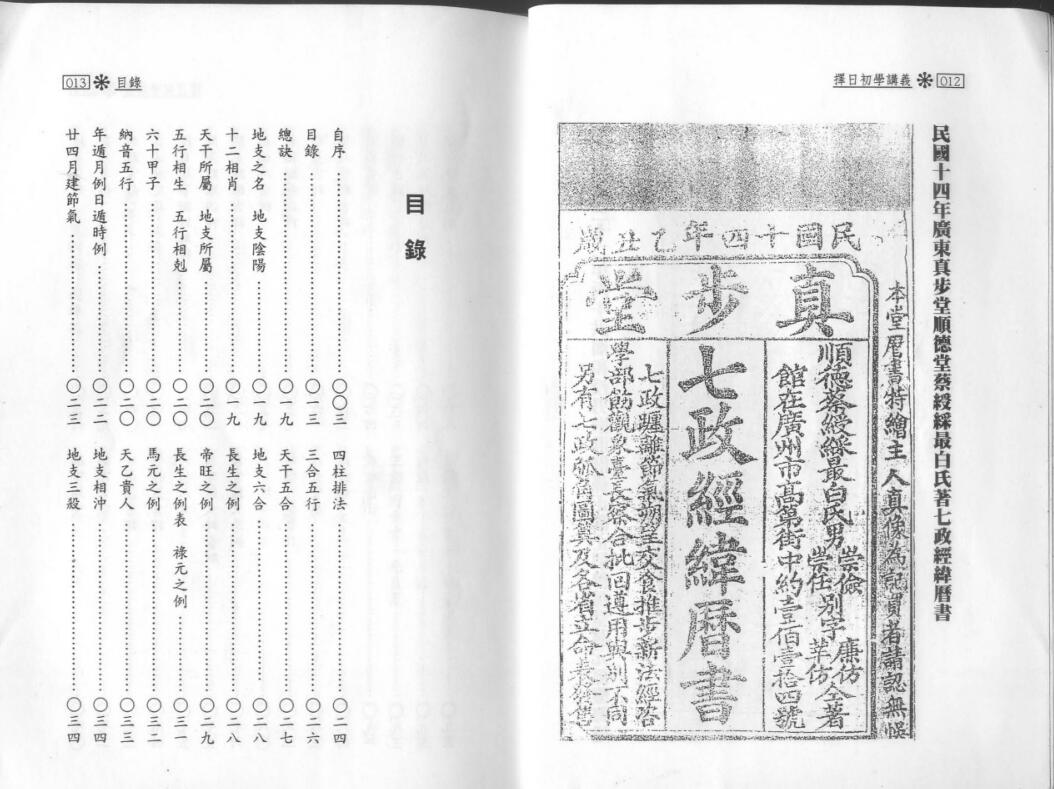 擇日初學講義 012
民國十四年廣東真步堂順德堂蔡綬綵最白氏著七政經緯曆書
民國十四年乙丑歲
真步堂
本堂曆書特繪主人真像為記買者請認無悞
順德蔡綬綵最白氏男 崇儉 廉仿
崇任別字 芋仿仝著
館在廣州市高第街中約壹佰壹拾四號
七政經緯曆書
七政躔離節氣朔望交食推步新法經咨
學部飭觀象臺長察合批回遵用與別不同
另有七政弧角圖算及各省立命表發售
013 目錄
目錄
自序……〇〇三
目錄……〇一三
總訣……〇一九
地支之名 地支陰陽……〇一九
十二相肖……〇一九
天干所屬 地支所屬……〇二〇
五行相生 五行相剋……〇二〇
六十甲子……〇二〇
納音五行……〇二〇
年遁月例日遁時例……〇二二
廿四月建節氣……〇二三
四柱排法……〇二四
三合五行……〇二六
天干五合……〇二七
地支六合……〇二八
長生之例……〇二八
帝旺之例……〇二九
長生之例表 祿元之例……〇三一
馬元之例……〇三二
天乙貴人……〇三三
地支相沖……〇三四
地支三殺……〇三四